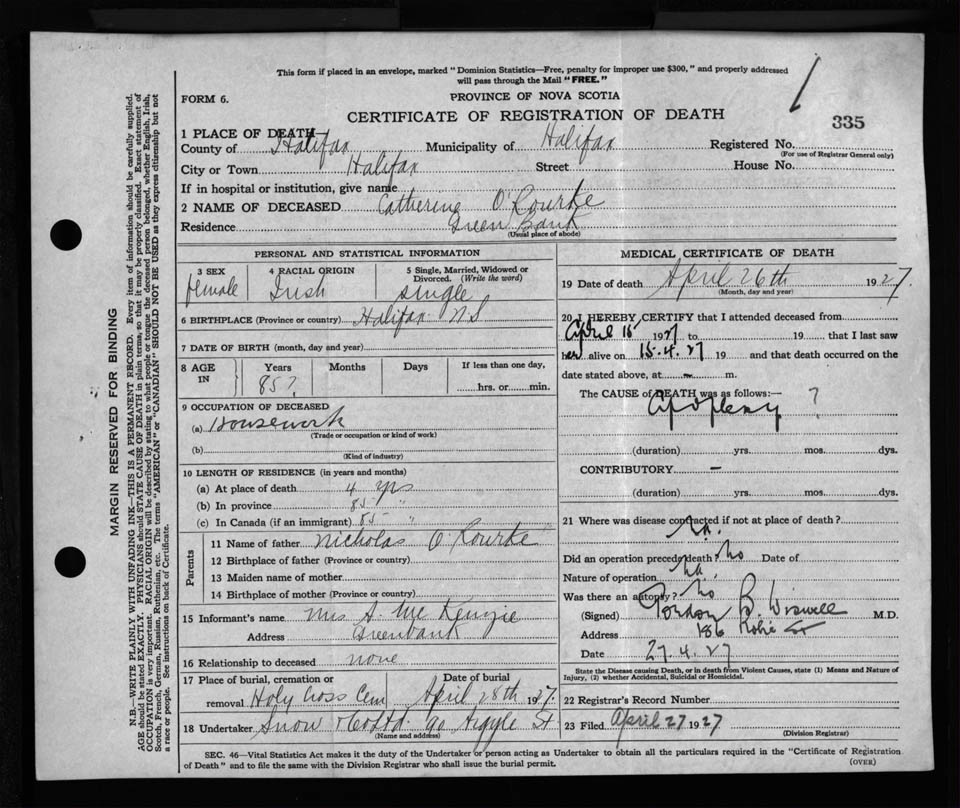 This form if placed in an envelope, marked "Dominion Statistics—Free, penalty for improper use $300," and properly addressed
will pass through the Mail "FREE."
FORM 6.
PROVINCE OF NOVA SCOTIA
CERTIFICATE OF REGISTRATION OF DEATH
335
1 PLACE OF DEATH—
County of Halifax Municipality of Halifax Registered No.
(For use of Registrar General only)
City or Town Halifax Street House No.
If in hospital or institution, give name
2 NAME OF DECEASED Catherine O'Rourke
Residence Green Bank
(Usual place of abode)
PERSONAL AND STATISTICAL INFORMATION
3 SEX 4 RACIAL ORIGIN 5 Single, Married, Widowed or
Divorced. (Write the word)
female Irish single
6 BIRTHPLACE (Province or country) Halifax N S
7 DATE OF BIRTH (month, day and year)
8 AGE IN Years Months Days If less than one day,
85? hrs. or min.
9 OCCUPATION OF DECEASED
(a) Housework
(Trade or occupation or kind of work)
(b)
(Kind of industry)
10 LENGTH OF RESIDENCE (in years and months)
(a) At place of death 4 yrs
(b) In province 85 "
(c) In Canada (if an immigrant) 85 "
Parents
11 Name of father Nicholas O'Rourke
12 Birthplace of father (Province or country)
13 Maiden name of mother
14 Birthplace of mother (Province or country)
15 Informant's name Mrs A. McKenzie
Address Greenbank
16 Relationship to deceased none
17 Place of burial, cremation or Date of burial
removal Holy Cross Cem April 28th 1927.
18 Undertaker Snow & Co Ltd 90 Argyle St
(Name and address)
MEDICAL CERTIFICATE OF DEATH
19 Date of death April 26th 1927.
(Month, day and year)
20 I HEREBY CERTIFY that I attended deceased from
April 15 1927 to 19 that I last saw
her alive on 15.4.27 19 and that death occurred on the
date stated above, at — m.
The CAUSE of DEATH was as follows:—
Apoplexy ?
(duration) yrs. mos. dys.
CONTRIBUTORY —
(duration) yrs. mos. dys.
21 Where was disease contracted if not at place of death?
Did an operation precede death? No Date of
Nature of operation
Was there an autopsy? No
(Signed) Gordon B. Wiswell M.D.
Address 186 Robie St
Date 27.4.27
State the Disease causing Death, or in death from Violent Causes, state (1) Means and Nature of
Injury, (2) whether Accidental, Suicidal or Homicidal.
22 Registrar's Record Number
23 Filed April 27 1927
(Division Registrar)
SEC. 46—Vital Statistics Act makes it the duty of the Undertaker or person acting as Undertaker to obtain all the particulars required in the "Certificate of Registration
of Death" and to file the same with the Division Registrar who shall issue the burial permit. (OVER)
MARGIN RESERVED FOR BINDING
N.B.—WRITE PLAINLY WITH UNFADING INK—THIS IS A PERMANENT RECORD. Every item of information should be carefully supplied.
AGE should be stated EXACTLY. PHYSICIANS should STATE CAUSE OF DEATH in plain terms, so that it may be properly classified. Exact statement of
OCCUPATION is very important. RACIAL ORIGIN will be described by stating to what people or tongue the deceased person belonged, whether English, Irish,
Scotch, French, German, Russian, Ruthenian, etc. The terms "AMERICAN" or "CANADIAN" SHOULD NOT BE USED as they express citizenship but not
a race or people. See instructions on back of Certificate.